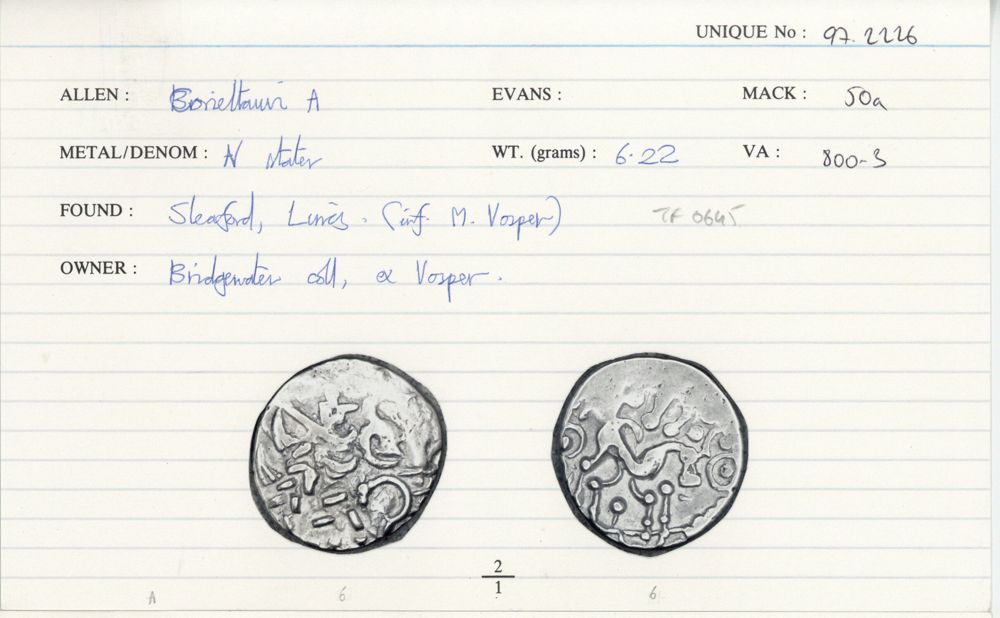 UNIQUE No : 97.2226
ALLEN : Corieltauvi A EVANS : MACK : 50a
METAL/DENOM : N stater WT. (grams) : 6.22 VA : 800-3
FOUND : Sleaford, Lincs. (inf. M. Vosper) TF 0645
OWNER : Bridgewater coll, ex Vosper.
2
1
A 6 6